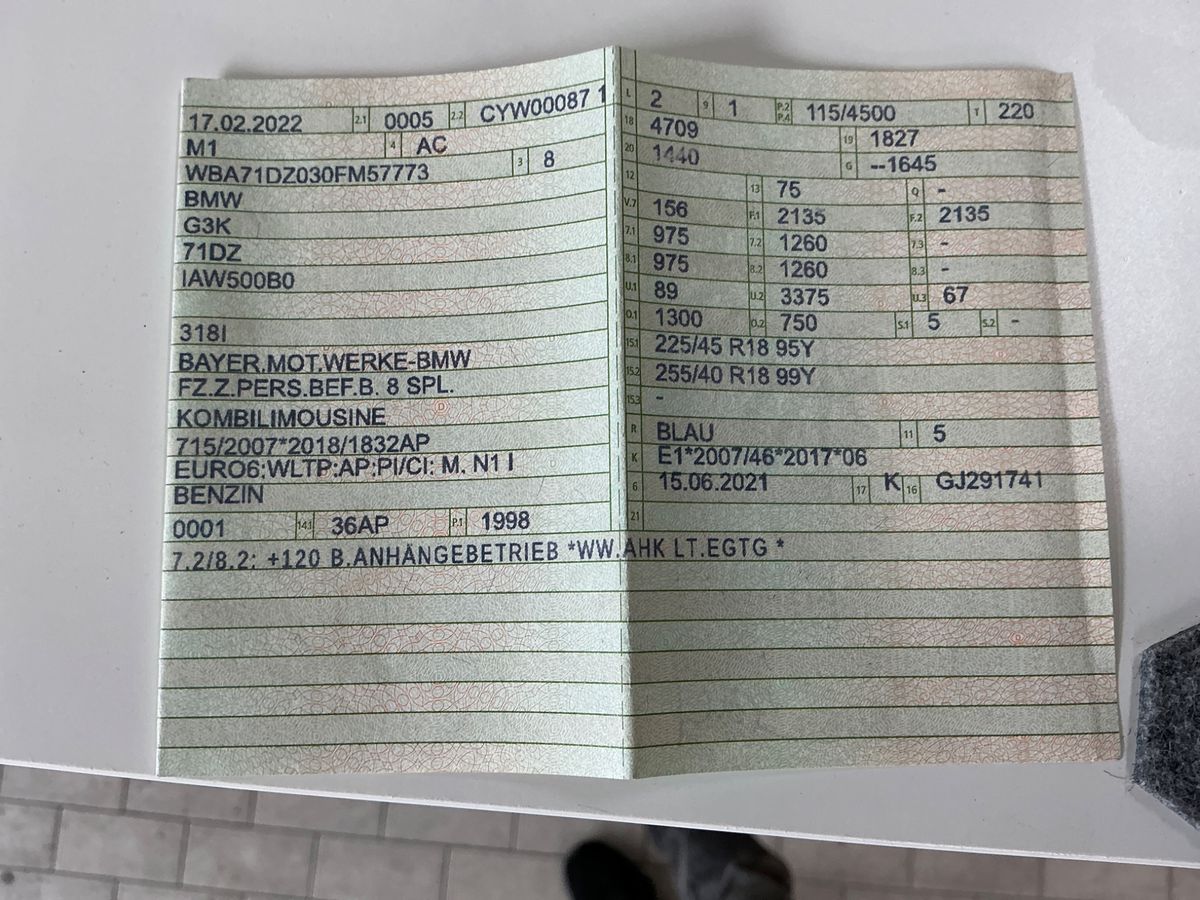 17.02.2022 2.1 0005 2.2 CYW00087 1
M1 4 AC
WBA71DZ030FM57773 3 8
BMW
G3K
71DZ
IAW500B0
318I
BAYER.MOT.WERKE-BMW
FZ.Z.PERS.BEF.B. 8 SPL.
KOMBILIMOUSINE
715/2007*2018/1832AP
EURO6;WLTP;AP;PI/CI; M, N1 I
BENZIN
0001 14.1 36AP P.1 1998
L 2 9 1 P.2 P.4 115/4500 T 220
18 4709 19 1827
20 1440 G --1645
12 13 75 Q -
V.7 156 F.1 2135 F.2 2135
7.1 975 7.2 1260 7.3 -
8.1 975 8.2 1260 8.3 -
U.1 89 U.2 3375 U.3 67
O.1 1300 O.2 750 S.1 5 S.2 -
15.1 225/45 R18 95Y
15.2 255/40 R18 99Y
15.3 -
R BLAU 11 5
K E1*2007/46*2017*06
6 15.06.2021 17 K 16 GJ291741
21
7.2/8.2: +120 B.ANHÄNGEBETRIEB *WW.AHK LT.EGTG *